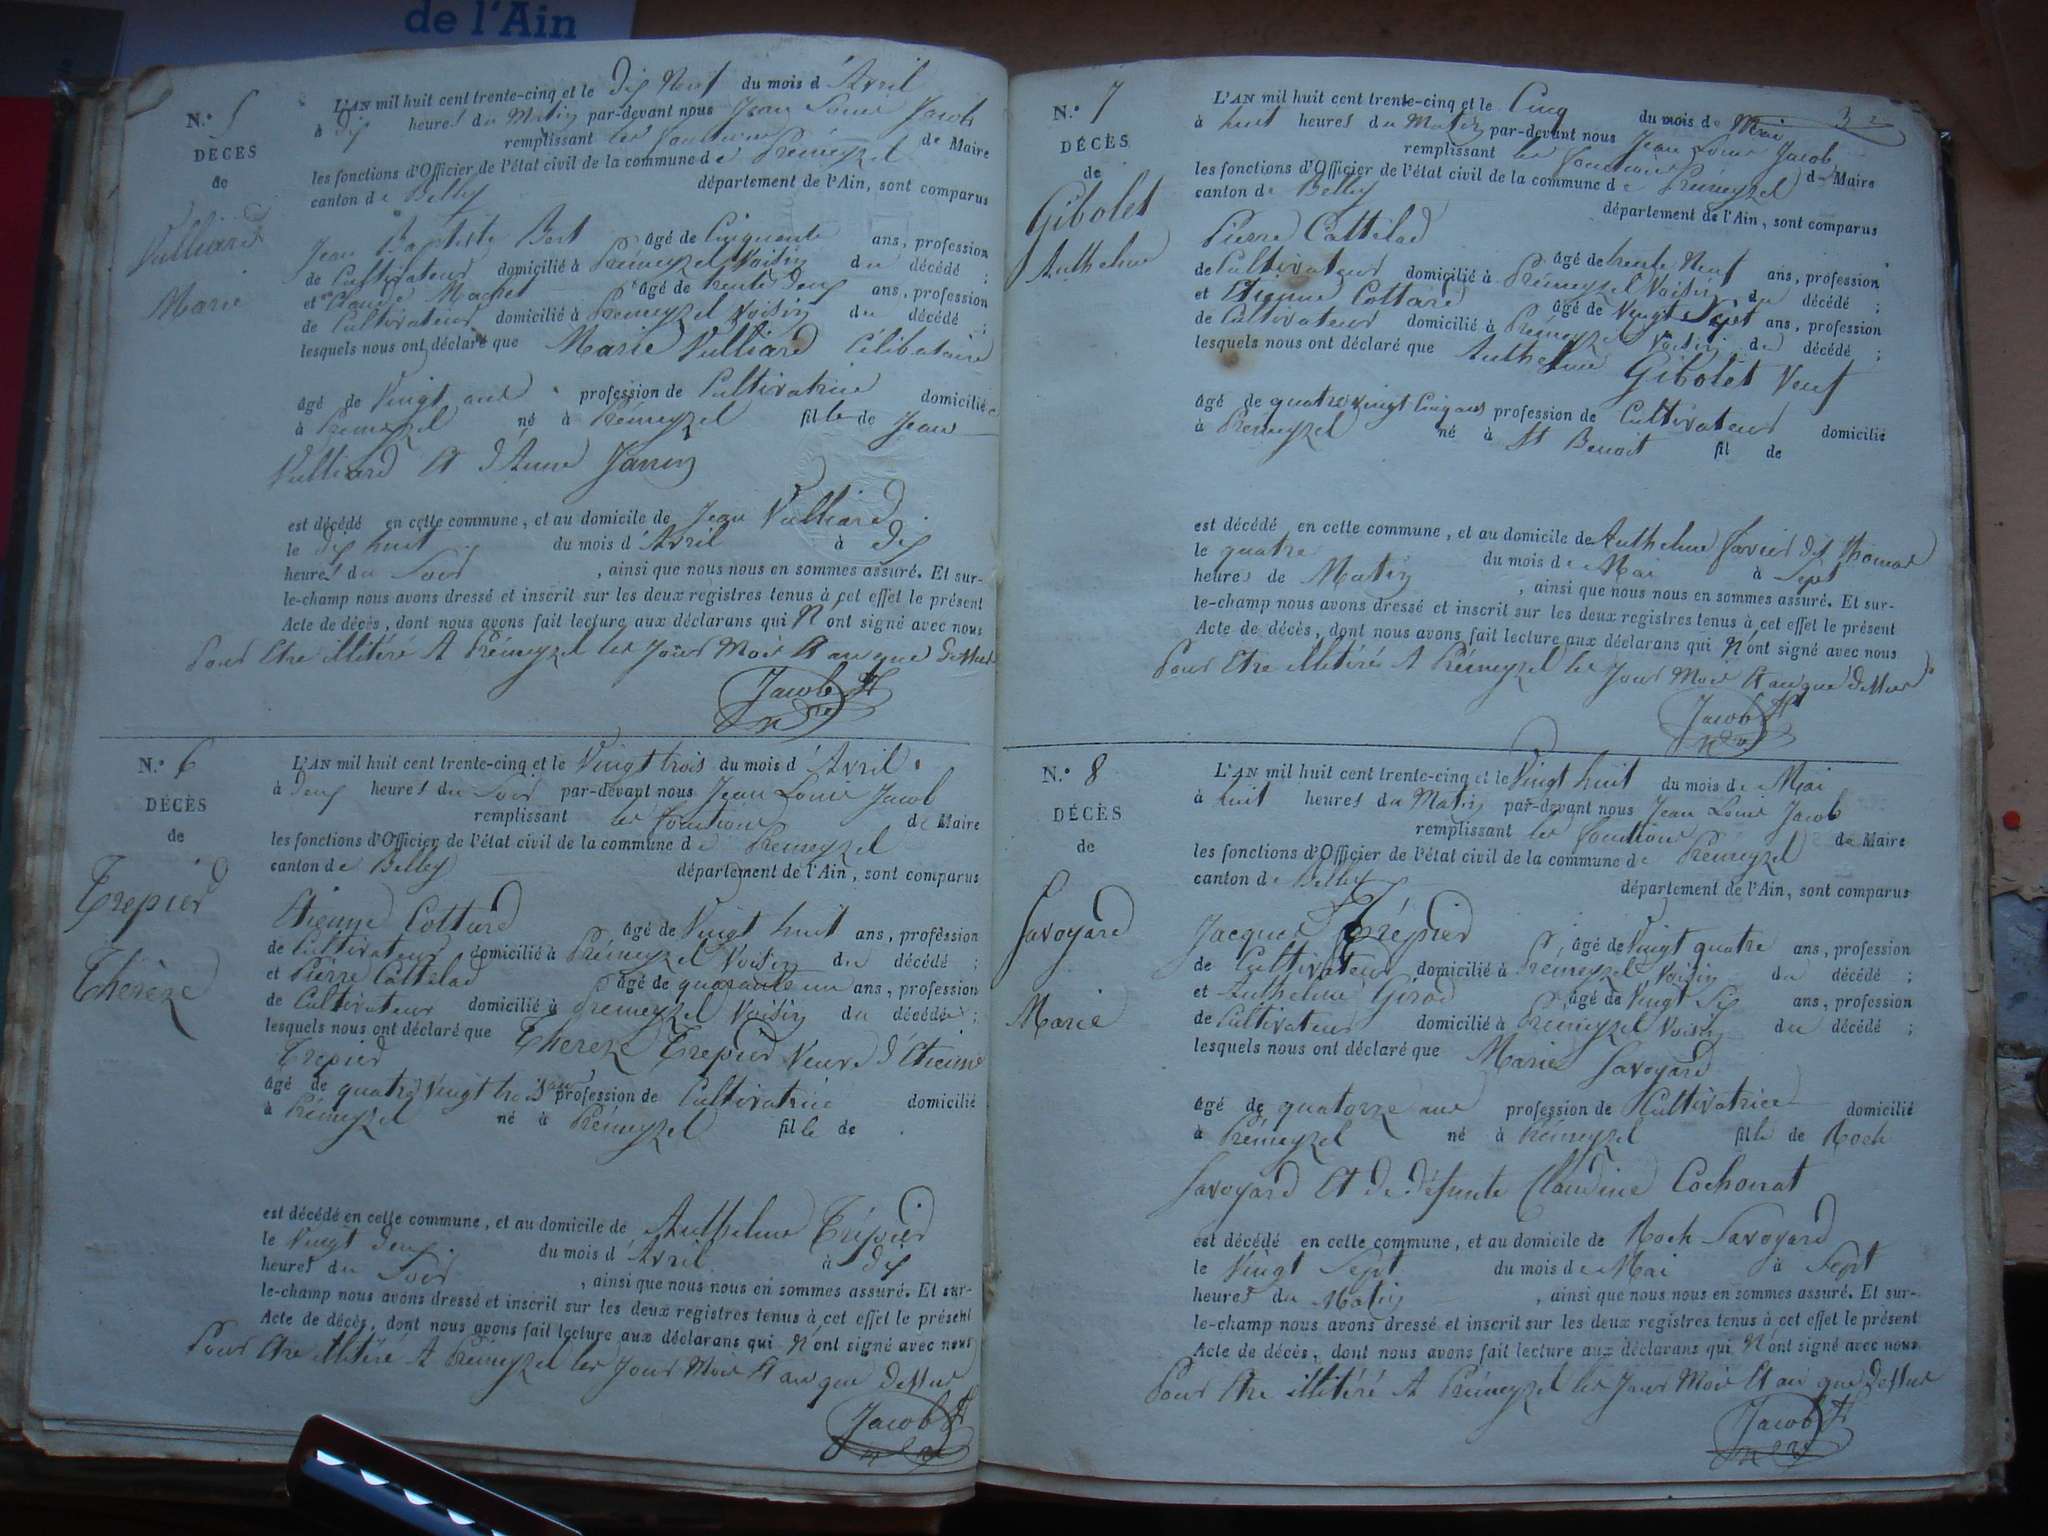 de l'Ain
N.° 5
DÉCÈS
de
Vulliard
Marie
L'AN mil huit cent trente-cinq et le Dix Neuf du mois d'Avril
à Dix heures du Matin par-devant nous Jean Louis Jacob
remplissant les fonctions de Maire
les fonctions d'Officier de l'état civil de la commune de Prémeyzel
canton de Belley département de l'Ain, sont comparus
Jean Baptiste Bert âgé de Cinquante ans, profession
de Cultivateur domicilié à Prémeyzel Voisin du décédé ;
et Claude âgé de trente Deux ans, profession
de Cultivateur domicilié à Prémeyzel Voisin du décédé ;
lesquels nous ont déclaré que Marie Vulliard Célibataire
âgé de Vingt ans profession de Cultivatrice domicilié
à Prémeyzel né à Prémeyzel fille de Jean
Vulliard Et d'Anne
est décédé en cette commune, et au domicile de Jean Vulliard
le Dix huit du mois d'Avril à Dix
heures du Soir , ainsi que nous nous en sommes assuré. Et sur-
le-champ nous avons dressé et inscrit sur les deux registres tenus à cet effet le présent
Acte de décès, dont nous avons fait lecture aux déclarans qui N'ont signé avec nous
Pour Etre illitéré A Prémeyzel les Jour Mois Et an que Dessus
Jacob
N.° 6
DÉCÈS
de
Trepier
Thérèze
L'AN mil huit cent trente-cinq et le Vingt trois du mois d'Avril
à Deux heures du Soir par-devant nous Jean Louis Jacob
remplissant les fonctions de Maire
les fonctions d'Officier de l'état civil de la commune de Prémeyzel
canton de Belley département de l'Ain, sont comparus
Etienne Cottard âgé de Vingt huit ans, profession
de Cultivateur domicilié à Prémeyzel Voisin du décédé ;
et Pierre Cattelad âgé de quarante un ans, profession
de Cultivateur domicilié à Prémeyzel Voisin du décédé ;
lesquels nous ont déclaré que Thereze Trepier Veuve d'Etienne
Trepier
âgé de quatre Vingt trois ans profession de Cultivatrice domicilié
à Prémeyzel né à Prémeyzel fille de
est décédé en cette commune, et au domicile de Anthelme Trépier
le Vingt Deux du mois d'Avril à Dix
heures du Soir , ainsi que nous nous en sommes assuré. Et sur-
le-champ nous avons dressé et inscrit sur les deux registres tenus à cet effet le présent
Acte de décès, dont nous avons fait lecture aux déclarans qui N'ont signé avec nous
Pour Etre illitéré A Prémeyzel les Jour Mois Et an que Dessus
Jacob
N.° 7
DÉCÈS
de
Gibolet
Anthelme
L'AN mil huit cent trente-cinq et le Cinq du mois de Mai 3
à huit heures du Matin par-devant nous Jean Louis Jacob
remplissant les fonctions de Maire
les fonctions d'Officier de l'état civil de la commune de Prémeyzel
canton de Belley département de l'Ain, sont comparus
Pierre Cattelad âgé de trente Neuf ans, profession
de Cultivateur domicilié à Prémeyzel Voisin du décédé ;
et Etienne Cottard âgé de Vingt Sept ans, profession
de Cultivateur domicilié à Prémeyzel Voisin du décédé ;
lesquels nous ont déclaré que Anthelme Gibolet Veuf
âgé de quatre vingt Cinq ans profession de Cultivateur domicilié
à Prémeyzel né à St Benoit fil de
est décédé en cette commune, et au domicile de Anthelme Savier dit Thomas
le quatre du mois de Mai à Sept
heures de Matin , ainsi que nous nous en sommes assuré. Et sur-
le-champ nous avons dressé et inscrit sur les deux registres tenus à cet effet le présent
Acte de décès, dont nous avons fait lecture aux déclarans qui N'ont signé avec nous
Pour Etre illitérés A Prémeyzel les Jour Mois Et an que Dessus
Jacob
N.° 8
DÉCÈS
de
Savoyard
Marie
L'AN mil huit cent trente-cinq et le Vingt huit du mois de Mai
à huit heures du Matin par-devant nous Jean Louis Jacob
remplissant les fonctions de Maire
les fonctions d'Officier de l'état civil de la commune de Prémeyzel
canton de Belley département de l'Ain, sont comparus
Jacques Trépier âgé de Vingt quatre ans, profession
de Cultivateur domicilié à Prémeyzel Voisin du décédé ;
et Anthelme Girod âgé de Vingt Six ans, profession
de Cultivateur domicilié à Prémeyzel Voisin du décédé ;
lesquels nous ont déclaré que Marie Savoyard
âgé de quatorze ans profession de Cultivatrice domicilié
à Prémeyzel né à Prémeyzel fille de Roch
Savoyard Et de défunte Claudine Cochonat
est décédé en cette commune, et au domicile de Roch Savoyard
le Vingt Sept du mois de Mai à Sept
heures du Matin , ainsi que nous nous en sommes assuré. Et sur-
le-champ nous avons dressé et inscrit sur les deux registres tenus à cet effet le présent
Acte de décès, dont nous avons fait lecture aux déclarans qui N'ont signé avec nous
Pour Etre illitéré A Prémeyzel les Jour Mois Et an que Dessus
Jacob